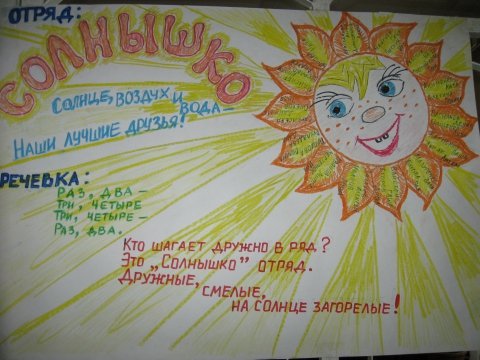 ОТРЯД:
СОЛНЫШКО
СОЛНЦЕ, ВОЗДУХ И
ВОДА –
НАШИ ЛУЧШИЕ ДРУЗЬЯ!
РЕЧЕВКА:
РАЗ, ДВА –
ТРИ, ЧЕТЫРЕ
ТРИ, ЧЕТЫРЕ –
РАЗ, ДВА.
КТО ШАГАЕТ ДРУЖНО В РЯД?
ЭТО „СОЛНЫШКО" ОТРЯД.
ДРУЖНЫЕ, СМЕЛЫЕ,
НА СОЛНЦЕ ЗАГОРЕЛЫЕ!